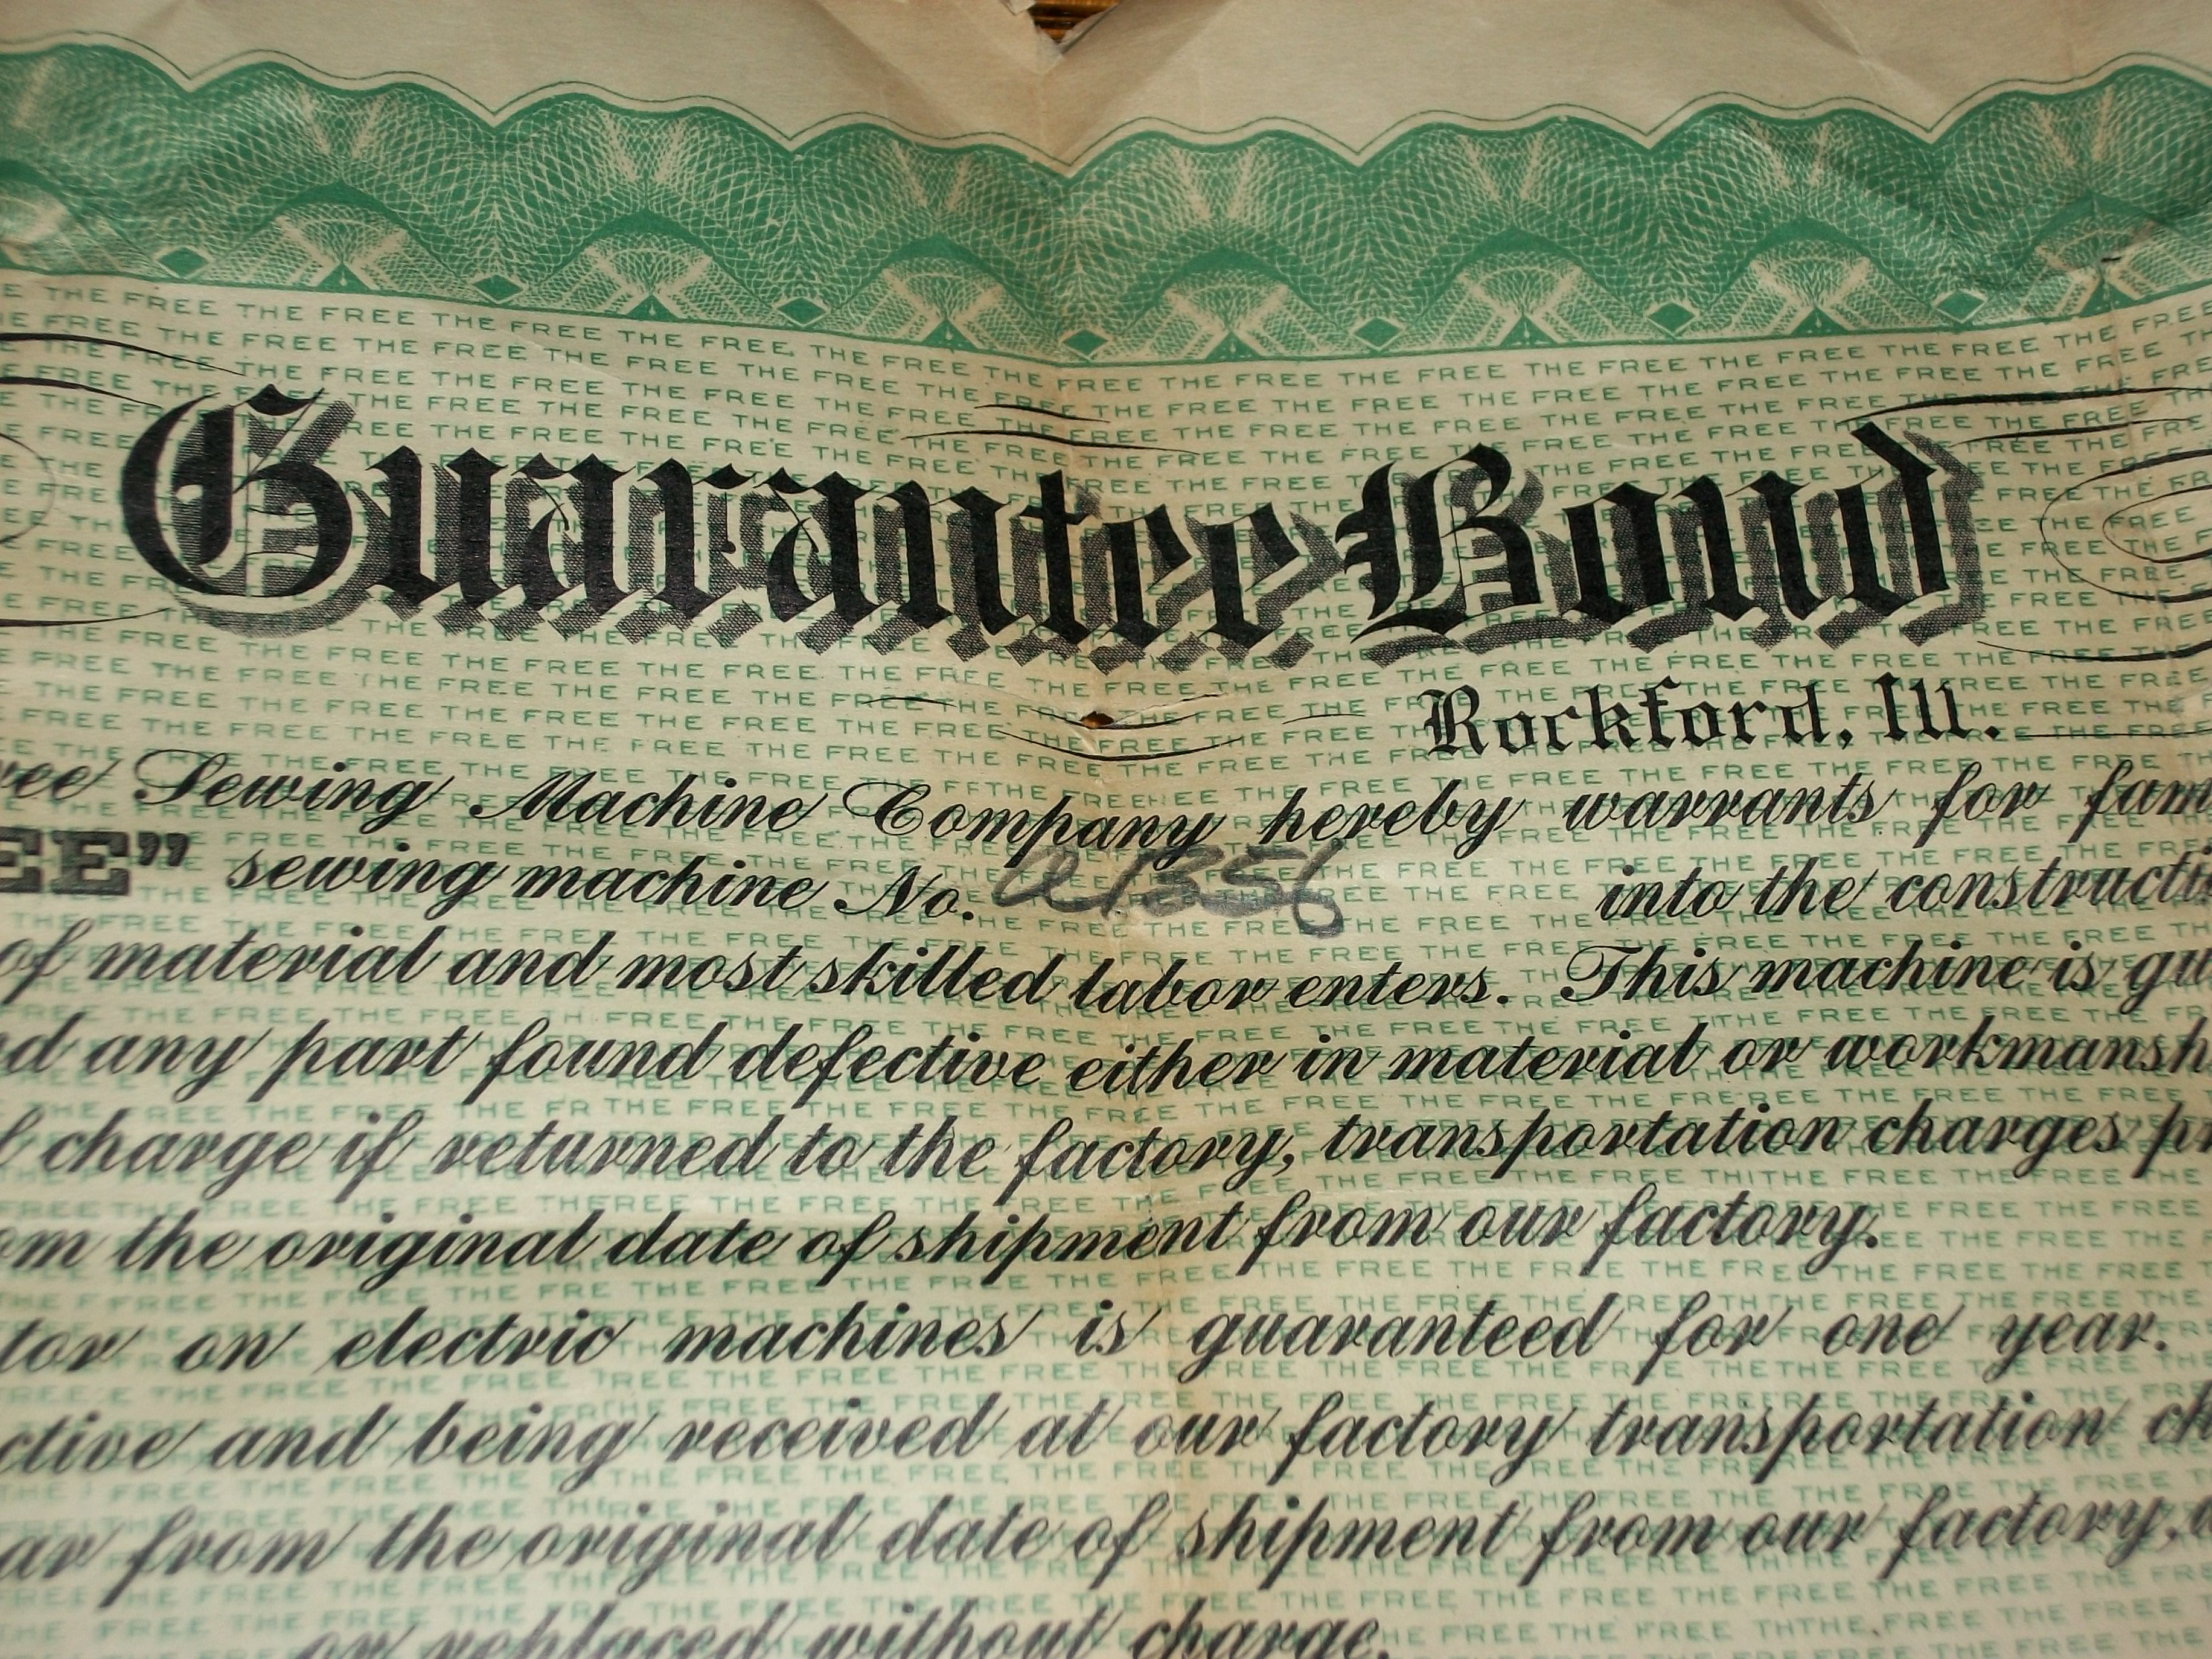 Guarantee Bond
Rockford, Ill.
ree Sewing Machine Company hereby warrants for fam
EE" sewing machine No. a1356 into the constructi
of material and most skilled labor enters. This machine is gu
d any part found defective either in material or workmansh
l charge if returned to the factory, transportation charges pr
om the original date of shipment from our factory.
tor on electric machines is guaranteed for one year.
ctive and being received at our factory transportation ch
ar from the original date of shipment from our factory,
or replaced without charge.